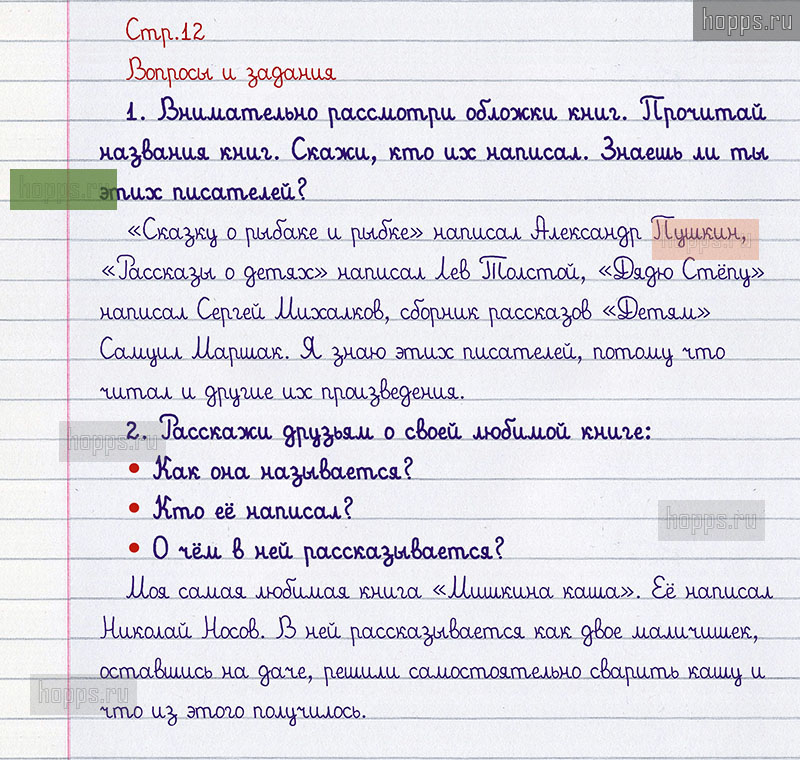 hopps.ru
Стр.12
Вопросы и задания
1. Внимательно рассмотри обложки книг. Прочитай
названия книг. Скажи, кто их написал. Знаешь ли ты
hopps.ru
этих писателей?
«Сказку о рыбаке и рыбке» написал Александр Пушкин,
hopps.ru
«Рассказы о детях» написал Лев Толстой, «Дядю Стёпу»
написал Сергей Михалков, сборник рассказов «Детям»
Самуил Маршак. Я знаю этих писателей, потому что
читал и другие их произведения.
hopps.ru
2. Расскажи друзьям о своей любимой книге:
• Как она называется?
• Кто её написал?
hopps.ru
• О чём в ней рассказывается?
Моя самая любимая книга «Мишкина каша». Её написал
Николай Носов. В ней рассказывается как двое мальчишек,
оставшись на даче, решили самостоятельно сварить кашу и
hopps.ru
что из этого получилось.